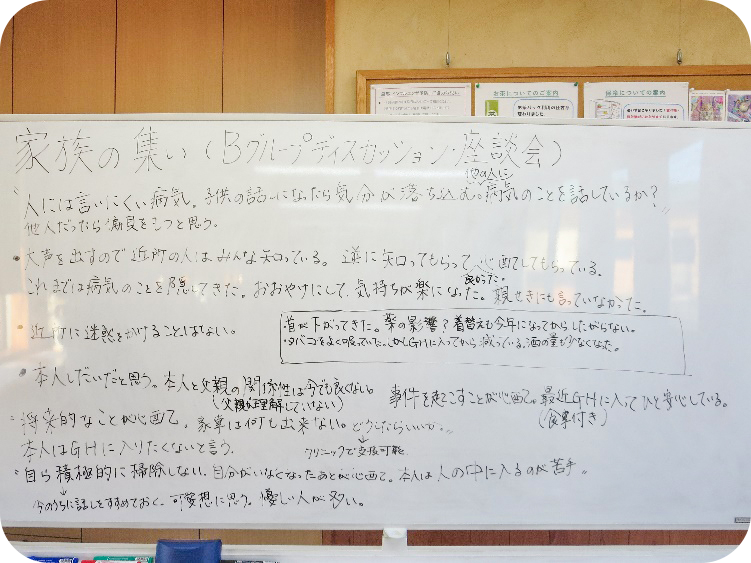 お茶についてのご案内
保冷についての案内
家族の集い(Bグループディスカッション・座談会)
他の人に
人には言いにくい病気。子供の話しになったら気分が落ち込む。病気のことを話しているか?
他人だったら偏見をもつと思う。
・大声を出すので近所の人はみんな知っている。逆に知ってもらって心配してもらっている。
良かった。
これまでは病気のことを隠してきた。おおやけにして、気持ちが楽になった。親せきにも言っていなかった。
近所に迷惑をかけることはない。
・首が下がってきた。薬の影響?着替えも今年になってからしたがらない。
・タバコをよく吸っていた。しかしGHに入ってから減っている。酒の量も少なくなった。
・本人しだいだと思う。本人と父親の関係性は今でも良くない。
(父親が理解していない)
事件を起こすことが心配で。最近GHに入ってひと安心している。
(食事付き)
将来的なことが心配で、家事は何も出来ない。どうしたらいいか。
本人はGHに入りたくないと言う。
クリニックで支援可能
自ら積極的に掃除しない。自分がいなくなったあとが心配で。本人は人の中に入るのが苦手。
今のうちに話しをすすめておく。可愛想に思う。優しい人が多い。